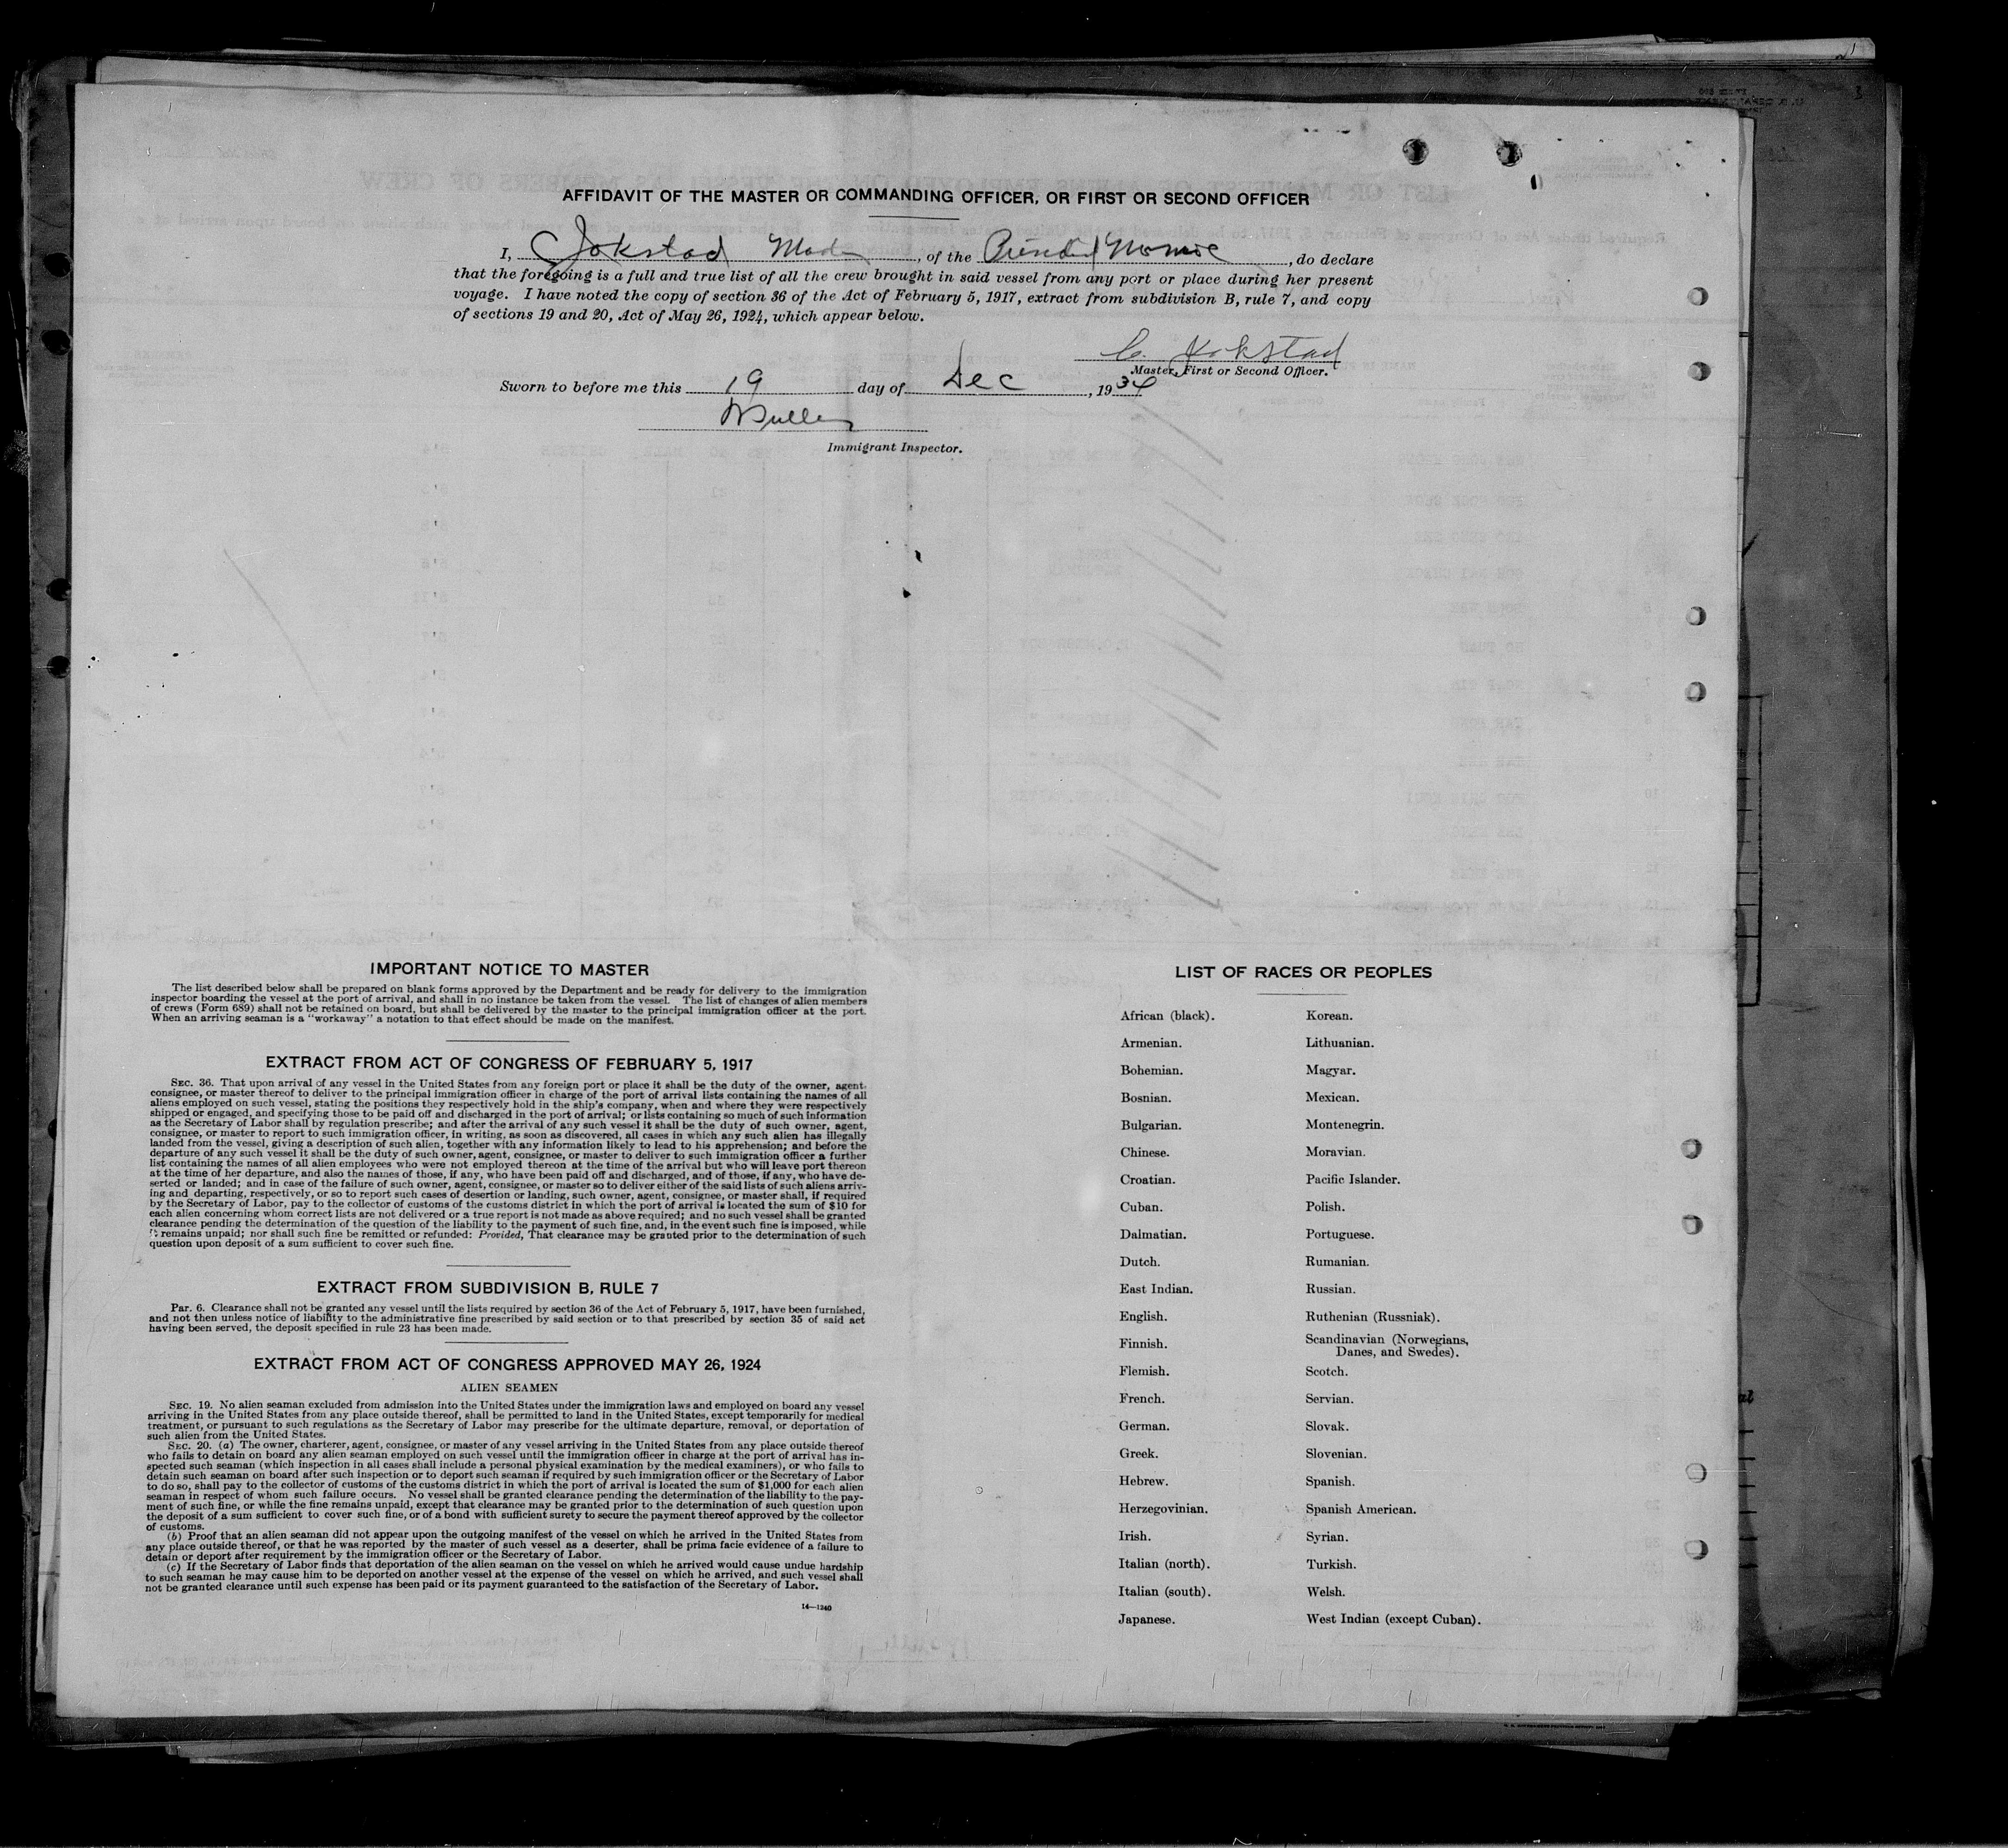 AFFIDAVIT OF THE MASTER OR COMMANDING OFFICER, OR FIRST OR SECOND OFFICER
I, C Jokstad Master, of the President Monroe, do declare
that the foregoing is a full and true list of all the crew brought in said vessel from any port or place during her present
voyage. I have noted the copy of section 36 of the Act of February 5, 1917, extract from subdivision B, rule 7, and copy
of sections 19 and 20, Act of May 26, 1924, which appear below.
C. Jokstad
Master, First or Second Officer.
Sworn to before me this 19 day of Dec, 1934
Immigrant Inspector.
IMPORTANT NOTICE TO MASTER
The list described below shall be prepared on blank forms approved by the Department and be ready for delivery to the immigration
inspector boarding the vessel at the port of arrival, and shall in no instance be taken from the vessel. The list of changes of alien members
of crews (Form 689) shall not be retained on board, but shall be delivered by the master to the principal immigration officer at the port.
When an arriving seaman is a "workaway" a notation to that effect should be made on the manifest.
EXTRACT FROM ACT OF CONGRESS OF FEBRUARY 5, 1917
SEC. 36. That upon arrival of any vessel in the United States from any foreign port or place it shall be the duty of the owner, agent,
consignee, or master thereof to deliver to the principal immigration officer in charge of the port of arrival lists containing the names of all
aliens employed on such vessel, stating the positions they respectively hold in the ship's company, when and where they were respectively
shipped or engaged, and specifying those to be paid off and discharged in the port of arrival; or lists containing so much of such information
as the Secretary of Labor shall by regulation prescribe; and after the arrival of any such vessel it shall be the duty of such owner, agent,
consignee, or master to report to such immigration officer, in writing, as soon as discovered, all cases in which any such alien has illegally
landed from the vessel, giving a description of such alien, together with any information likely to lead to his apprehension; and before the
departure of any such vessel it shall be the duty of such owner, agent, consignee, or master to deliver to such immigration officer a further
list containing the names of all alien employees who were not employed thereon at the time of the arrival but who will leave port thereon
at the time of her departure, and also the names of those, if any, who have been paid off and discharged, and of those, if any, who have de-
serted or landed; and in case of the failure of such owner, agent, consignee, or master so to deliver either of the said lists of such aliens arriv-
ing and departing, respectively, or so to report such cases of desertion or landing, such owner, agent, consignee, or master shall, if required
by the Secretary of Labor, pay to the collector of customs of the customs district in which the port of arrival is located the sum of $10 for
each alien concerning whom correct lists are not delivered or a true report is not made as above required; and no such vessel shall be granted
clearance pending the determination of the question of the liability to the payment of such fine, and, in the event such fine is imposed, while
it remains unpaid; nor shall such fine be remitted or refunded: Provided, That clearance may be granted prior to the determination of such
question upon deposit of a sum sufficient to cover such fine.
EXTRACT FROM SUBDIVISION B, RULE 7
Par. 6. Clearance shall not be granted any vessel until the lists required by section 36 of the Act of February 5, 1917, have been furnished,
and not then unless notice of liability to the administrative fine prescribed by said section or to that prescribed by section 35 of said act
having been served, the deposit specified in rule 23 has been made.
EXTRACT FROM ACT OF CONGRESS APPROVED MAY 26, 1924
ALIEN SEAMEN
SEC. 19. No alien seaman excluded from admission into the United States under the immigration laws and employed on board any vessel
arriving in the United States from any place outside thereof, shall be permitted to land in the United States, except temporarily for medical
treatment, or pursuant to such regulations as the Secretary of Labor may prescribe for the ultimate departure, removal, or deportation of
such alien from the United States.
SEC. 20. (a) The owner, charterer, agent, consignee, or master of any vessel arriving in the United States from any place outside thereof
who fails to detain on board any alien seaman employed on such vessel until the immigration officer in charge at the port of arrival has in-
spected such seaman (which inspection in all cases shall include a personal physical examination by the medical examiners), or who fails to
detain such seaman on board after such inspection or to deport such seaman if required by such immigration officer or the Secretary of Labor
to do so, shall pay to the collector of customs of the customs district in which the port of arrival is located the sum of $1,000 for each alien
seaman in respect of whom such failure occurs. No vessel shall be granted clearance pending the determination of the liability to the pay-
ment of such fine, or while the fine remains unpaid, except that clearance may be granted prior to the determination of such question upon
the deposit of a sum sufficient to cover such fine, or of a bond with sufficient surety to secure the payment thereof approved by the collector
of customs.
(b) Proof that an alien seaman did not appear upon the outgoing manifest of the vessel on which he arrived in the United States from
any place outside thereof, or that he was reported by the master of such vessel as a deserter, shall be prima facie evidence of a failure to
detain or deport after requirement by the immigration officer or the Secretary of Labor.
(c) If the Secretary of Labor finds that deportation of the alien seaman on the vessel on which he arrived would cause undue hardship
to such seaman he may cause him to be deported on another vessel at the expense of the vessel on which he arrived, and such vessel shall
not be granted clearance until such expense has been paid or its payment guaranteed to the satisfaction of the Secretary of Labor.
14—1240
LIST OF RACES OR PEOPLES
African (black).
Armenian.
Bohemian.
Bosnian.
Bulgarian.
Chinese.
Croatian.
Cuban.
Dalmatian.
Dutch.
East Indian.
English.
Finnish.
Flemish.
French.
German.
Greek.
Hebrew.
Herzegovinian.
Irish.
Italian (north).
Italian (south).
Japanese.
Korean.
Lithuanian.
Magyar.
Mexican.
Montenegrin.
Moravian.
Pacific Islander.
Polish.
Portuguese.
Rumanian.
Russian.
Ruthenian (Russniak).
Scandinavian (Norwegians,
Danes, and Swedes).
Scotch.
Servian.
Slovak.
Slovenian.
Spanish.
Spanish American.
Syrian.
Turkish.
Welsh.
West Indian (except Cuban).